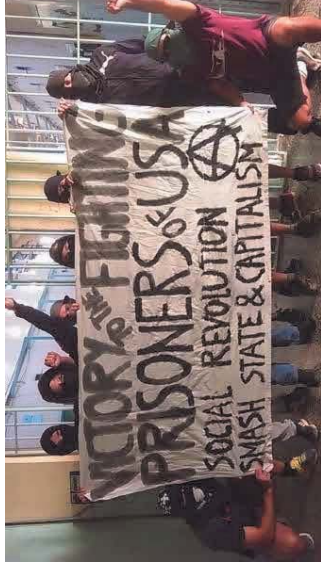 VICTORY TO THE FIGHTING
PRISONERS OF USA
SOCIAL REVOLUTION
SMASH STATE & CAPITALISM